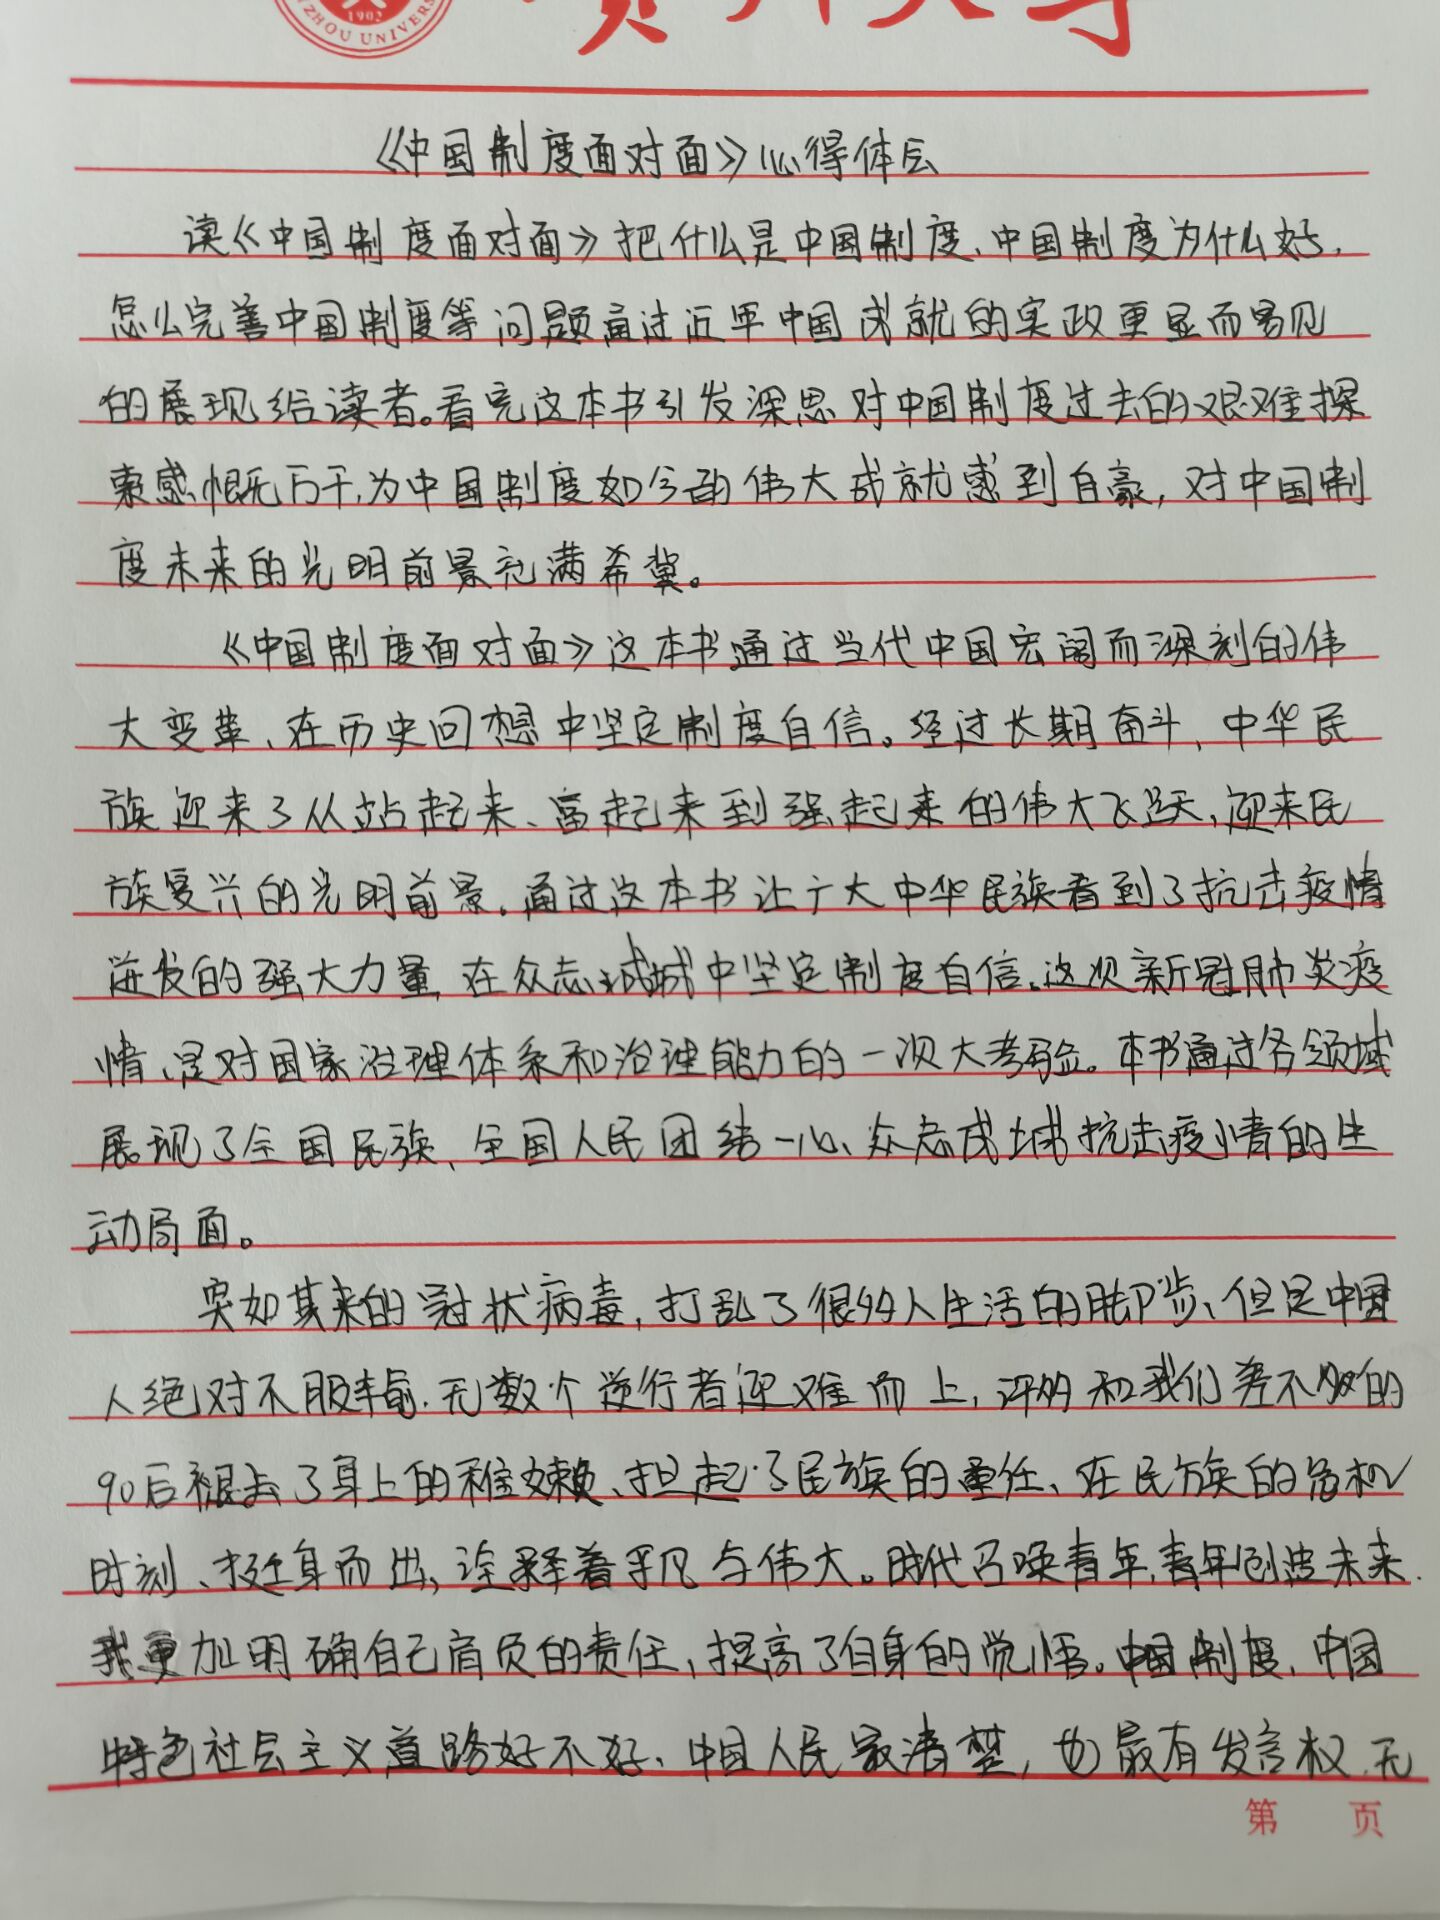 1902
ZHOU UNIVERS
《中国制度面对面》心得体会
读《中国制度面对面》把什么是中国制度、中国制度为什么好,
怎么完善中国制度等问题通过近年中国成就的实政更显而易见
的展现给读者。看完这本书引发深思对中国制度过去的艰难探
索感慨万千,为中国制度如今的伟大成就感到自豪,对中国制
度未来的光明前景充满希冀。
《中国制度面对面》这本书通过当代中国宏阔而深刻的伟
大变革、在历史回想中坚定制度自信。经过长期奋斗,中华民
族迎来了从站起来、富起来到强起来的伟大飞跃,迎来民
族复兴的光明前景。通过这本书让广大中华民族看到了抗击疫情
迸发的强大力量,在众志成城中坚定制度自信。这次新冠肺炎疫
情、是对国家治理体系和治理能力的一次大考验。本书通过各领域
展现了全国民族、全国人民团结一心、众志成城抗击疫情的生
动局面。
突如其来的冠状病毒,打乱了很多人生活的脚步、但是中国
人绝对不服输.无数个逆行者迎难而上,许多和我们差不多的
90后褪去了身上的稚嫩、担起了民族的重任、在民族的危机
时刻、挺身而出,诠释着平凡与伟大。时代召唤青年,青年创造未来.
我更加明确自己肩负的责任,提高了自身的觉悟。中国制度,中国
特色社会主义道路好不好、中国人民最清楚,也最有发言权.无
第 页